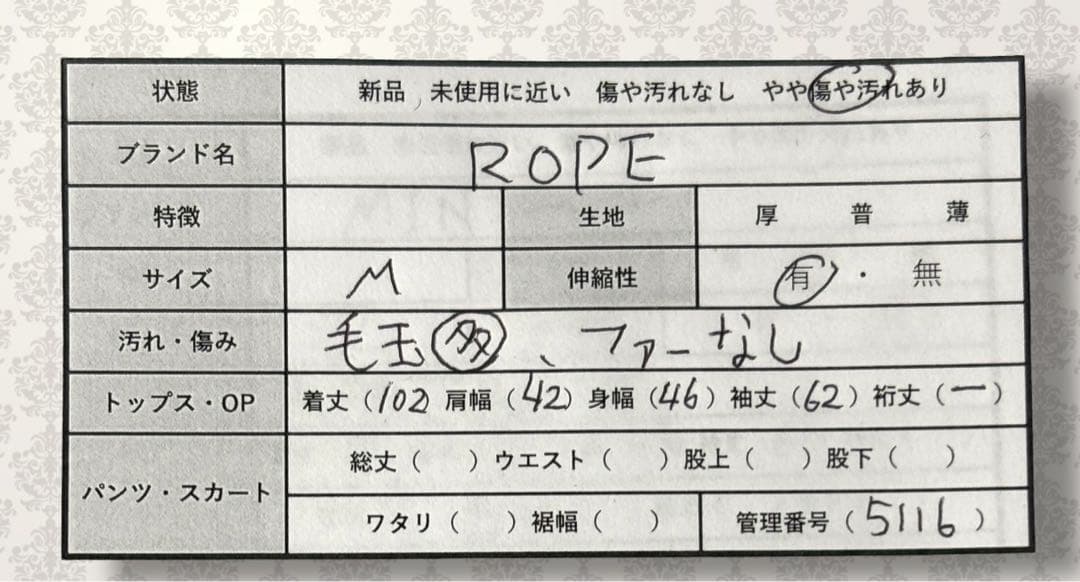 状態 新品 未使用に近い 傷や汚れなし やや傷や汚れあり
ブランド名 ROPE
特徴 生地 厚 普 薄
サイズ M 伸縮性 有 ・ 無
汚れ・傷み 毛玉多、ファーなし
トップス・OP 着丈(102) 肩幅(42) 身幅(46) 袖丈(62) 裄丈(ー)
パンツ・スカート 総丈( ) ウエスト( ) 股上( ) 股下( )
ワタリ( ) 裾幅( ) 管理番号(5116)